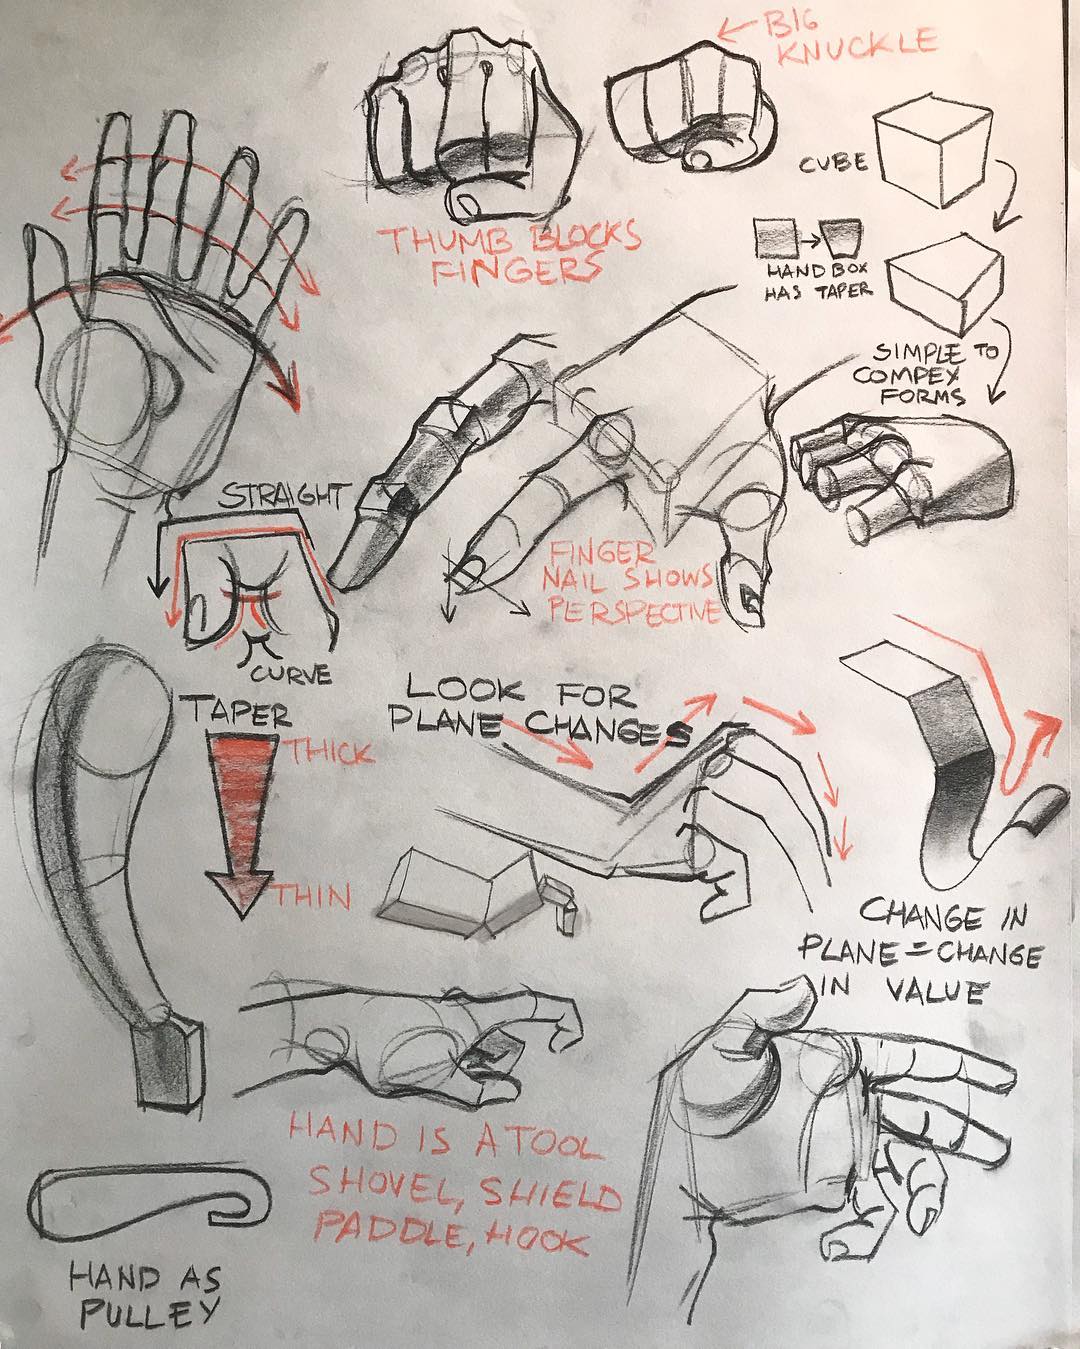 BIG
KNUCKLE
CUBE
THUMB BLOCKS
FINGERS
HAND BOX
HAS TAPER
SIMPLE TO
COMPEX
FORMS
STRAIGHT
FINGER
NAIL SHOWS
PERSPECTIVE
CURVE
TAPER
THICK
THIN
LOOK FOR
PLANE CHANGES
CHANGE IN
PLANE = CHANGE
IN VALUE
HAND IS A TOOL
SHOVEL, SHIELD
PADDLE, HOOK
HAND AS
PULLEY